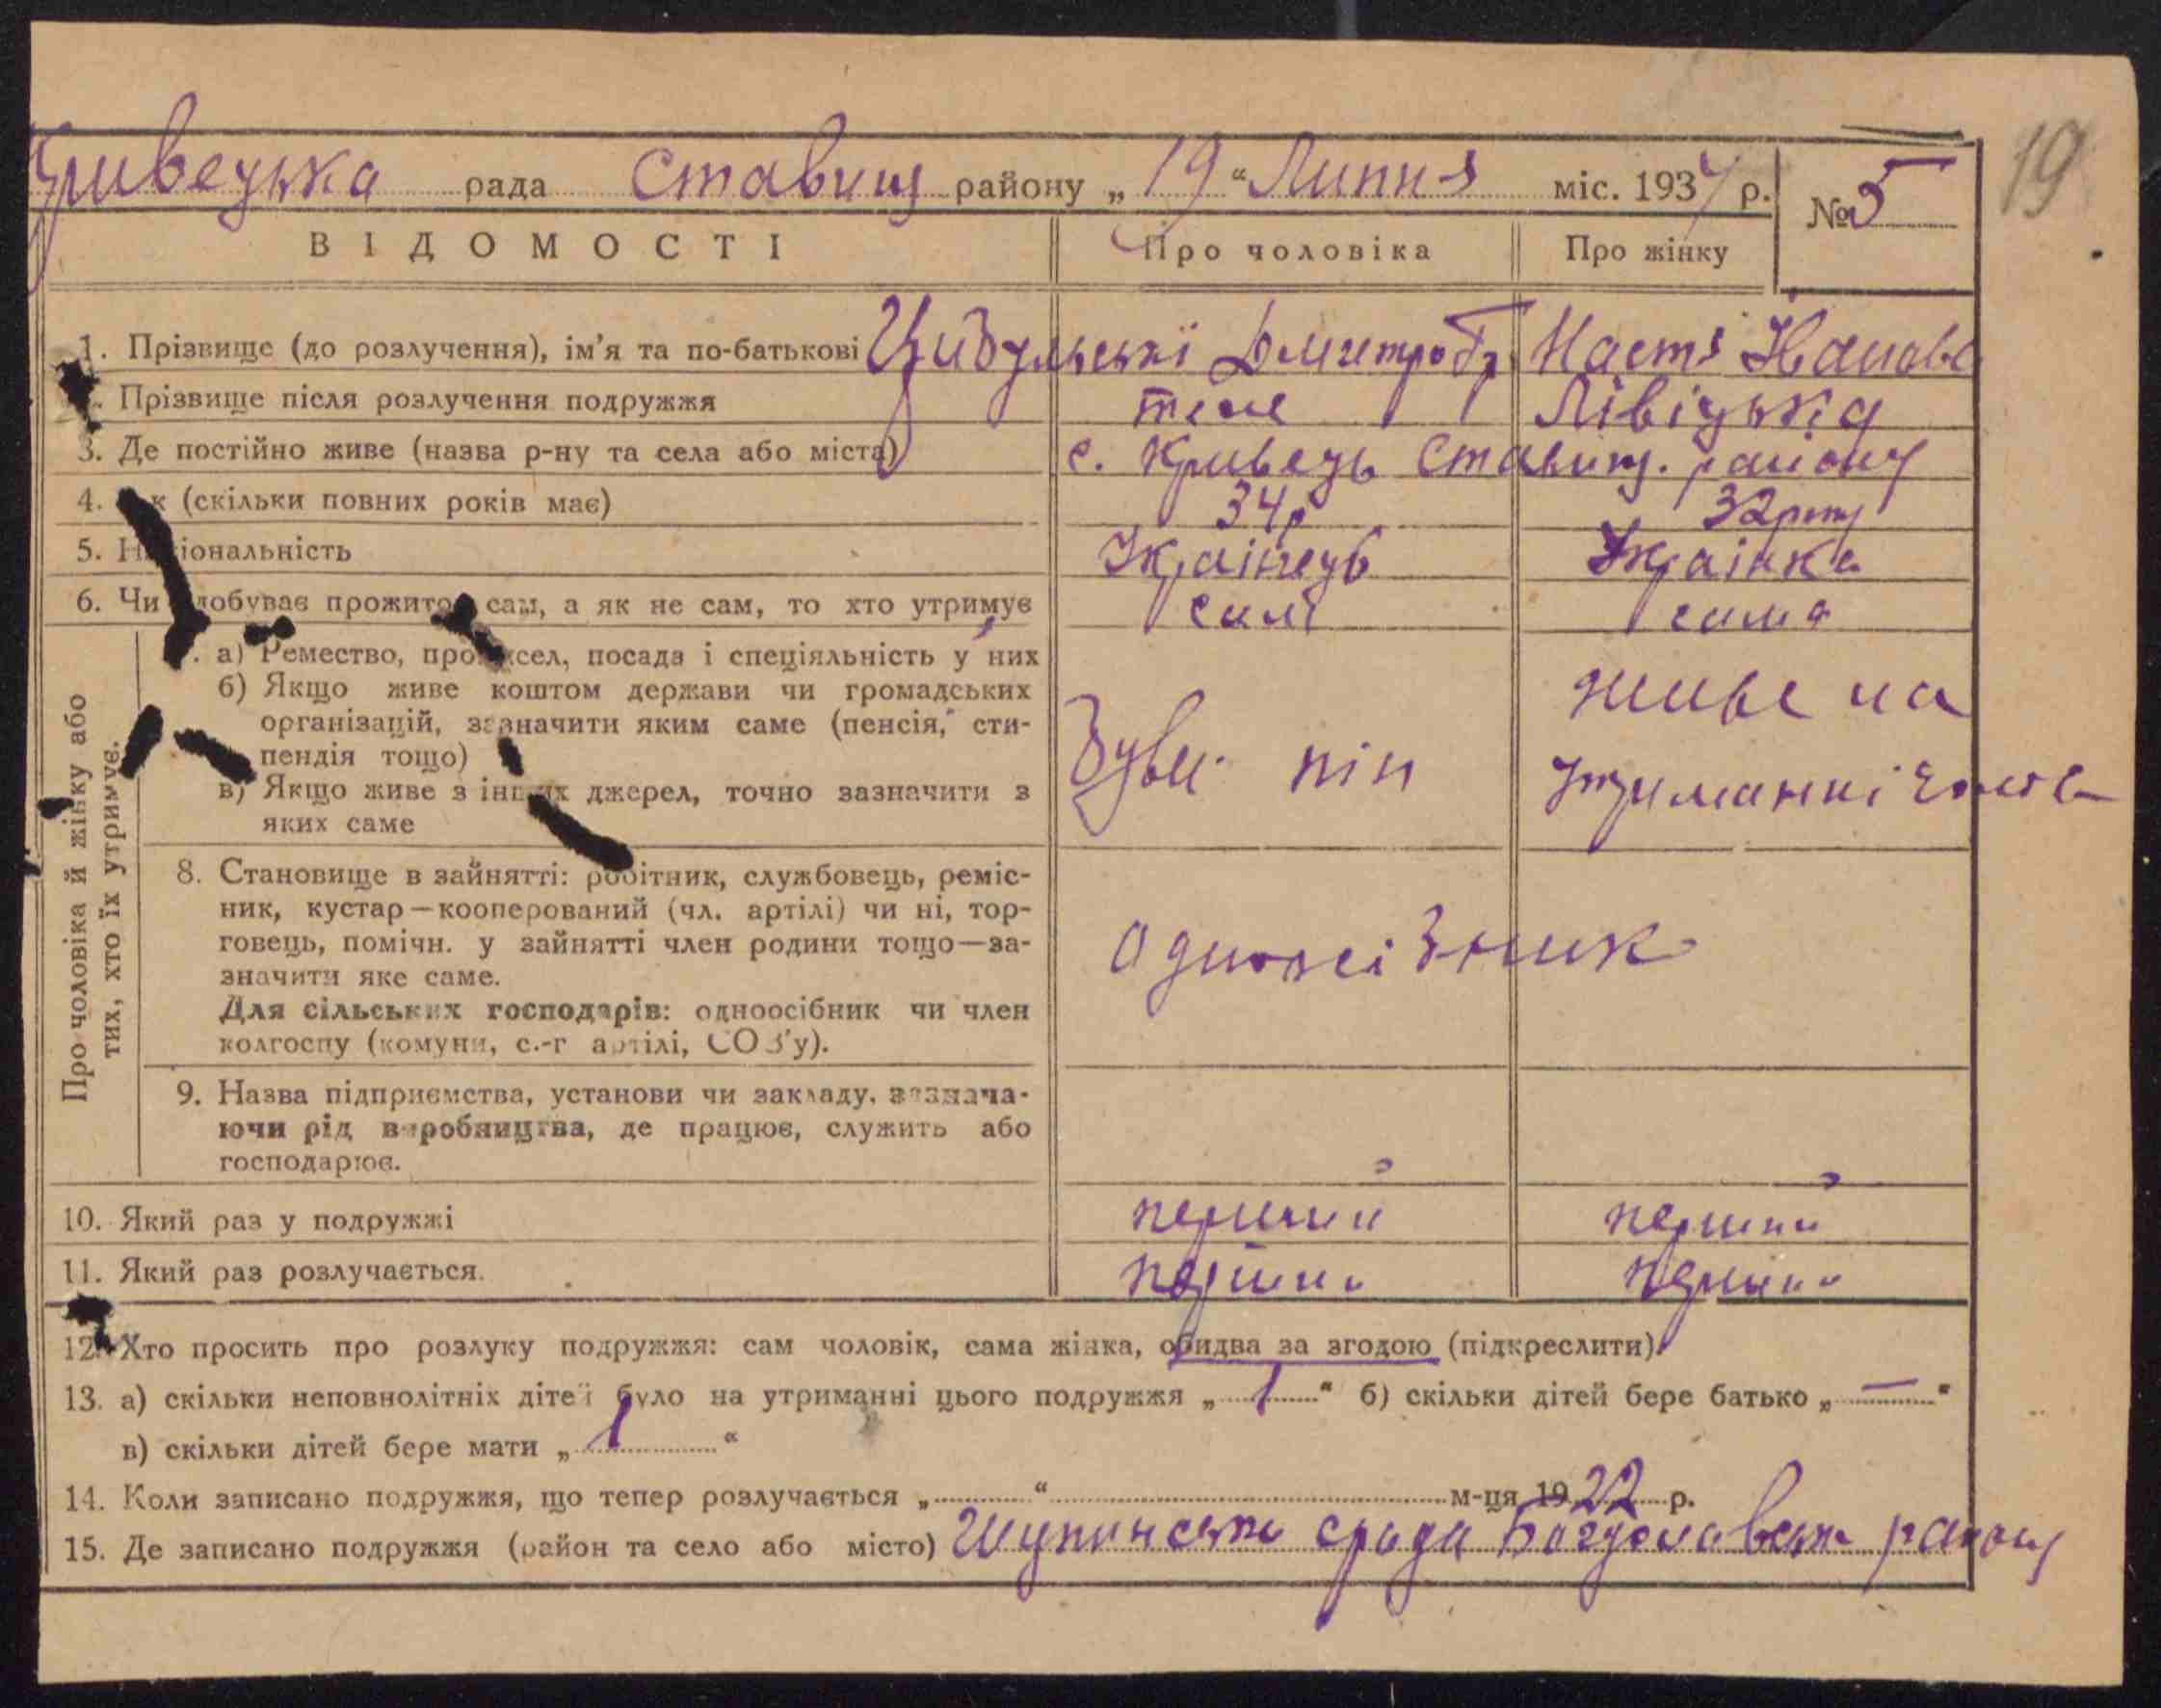 Кривецька рада Ставищ району „19“ Липня міс. 193 р. № 5
19
ВІДОМОСТІ Про чоловіка Про жінку
1. Прізвище (до розлучення), ім'я та по-батькові Цибульські Дмитро Настя Іванов
2. Прізвище після розлучення подружжя теж Лівіцька
3. Де постійно живе (назва р-ну та села або міста) с. Кривець Ставищ. району
4. Вік (скільки повних років має) 34р 32
5. Національність Украінець Украінка
6. Чи здобуває прожиток сам, а як не сам, то хто утримує сам сама
Про чоловіка й жінку або тих, хто їх утримує.
7. а) Ремество, промисел, посада і спеціяльність у них
б) Якщо живе коштом держави чи громадських
організацій, зазначити яким саме (пенсія, сти-
пендія тощо)
в) Якщо живе з інших джерел, точно зазначити з
яких саме
був піп
живе на
утриманні
8. Становище в зайнятті: робітник, службовець, реміс-
ник, кустар—кооперований (чл. артілі) чи ні, тор-
говець, помічн. у зайнятті член родини тощо—за-
значити яке саме.
Для сільських господарів: одноосібник чи член
колгоспу (комуни, с.-г артілі, СОЗ'у).
одноосібник
9. Назва підприємства, установи чи закладу, зазнача-
ючи рід виробництва, де працює, служить або
господарює.
10. Який раз у подружжі перший перший
11. Який раз розлучається. перший перший
12. Хто просить про розлуку подружжя: сам чоловік, сама жінка, обидва за згодою (підкреслити).
13. а) скільки неповнолітніх дітей було на утриманні цього подружжя „1“ б) скільки дітей бере батько „—“
в) скільки дітей бере мати „1“
14. Коли записано подружжя, що тепер розлучається „ “ м-ця 1922 р.
15. Де записано подружжя (район та село або місто) срада району